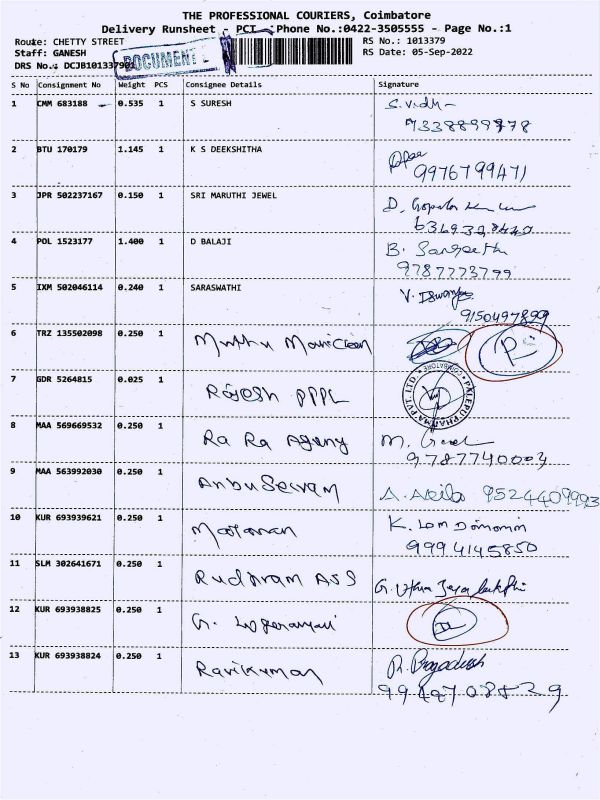 THE PROFESSIONAL COURIERS, Coimbatore
Delivery Runsheet - PCI - Phone No.:0422-3505555 - Page No.:1
Route: CHETTY STREET RS No.: 1013379
Staff: GANESH RS Date: 05-Sep-2022
DRS No.: DCJB101337901 DOCUMENT
S No Consignment No Weight PCS Consignee Details Signature
1 CMM 683188 0.535 1 S SURESH
7338899778
2 BTU 170179 1.145 1 K S DEEKSHITHA
9976799471
3 JPR 502237167 0.150 1 SRI MARUTHI JEWEL D.
4 POL 1523177 1.400 1 D BALAJI B. Sangeetha
9787773799
5 IXM 502046114 0.240 1 SARASWATHI V.
9150497899
6 TRZ 135502098 0.250 1 Muthu
7 GDR 5264815 0.025 1 Rajesh PPPL PALEPU PHARMA PVT. LTD. COIMBATORE
8 MAA 569669532 0.250 1 Ra Ra Agency M.
9787740003
9 MAA 563992030 0.250 1 A. Akila 9524409993
10 KUR 693939621 0.250 1 K.
9994145850
11 SLM 302641671 0.250 1 G. Uthra Jaya
12 KUR 693938825 0.250 1 G.
13 KUR 693938824 0.250 1 Ravikumar R.